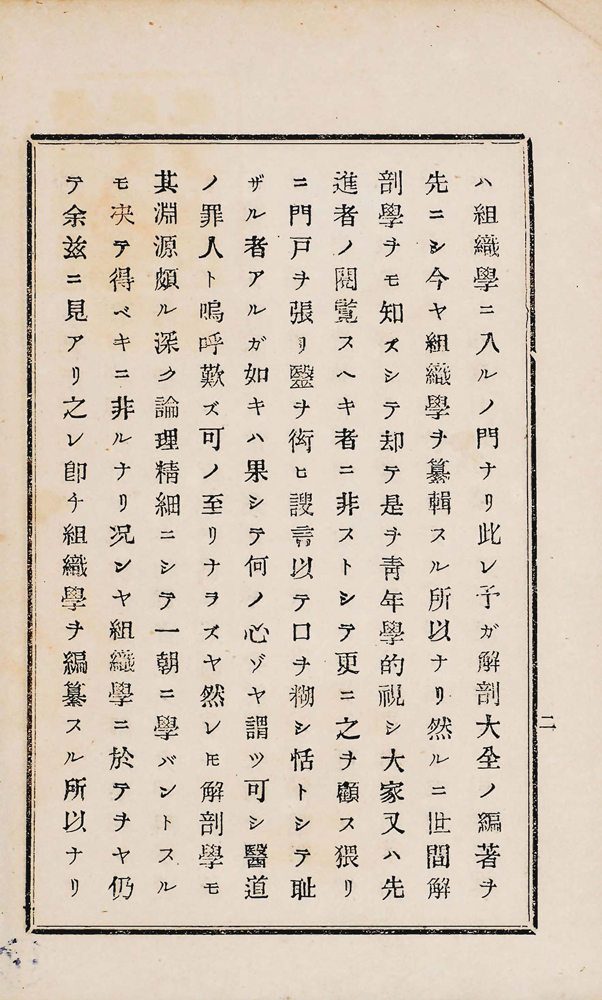 ハ組織學ニ入ルノ門ナリ此レ予ガ解剖大全ノ編著ヲ
先ニシ今ヤ組織學ヲ纂輯スル所以ナリ然ルニ世間解
剖學ヲモ知ズシテ却テ是ヲ靑年學的視シ大家又ハ先
進者ノ閱覽スヘキ者ニ非ストシテ更ニ之ヲ顧ス猥リ
ニ門戸ヲ張リ醫ヲ衒ヒ謏言以テ口ヲ糊シ恬トシテ耻
ザル者アルガ如キハ果シテ何ノ心ゾヤ謂ツ可シ醫道
ノ罪人ト嗚呼歎ズ可ノ至リナラズヤ然レ𪜈解剖學モ
其淵源頗ル深ク論理精細ニシテ一朝ニ學バントスル
モ决テ得ベキニ非ルナリ况ンヤ組織學ニ於テヲヤ仍
テ余玆ニ見アリ之レ卽チ組織學ヲ編纂スル所以ナリ
二